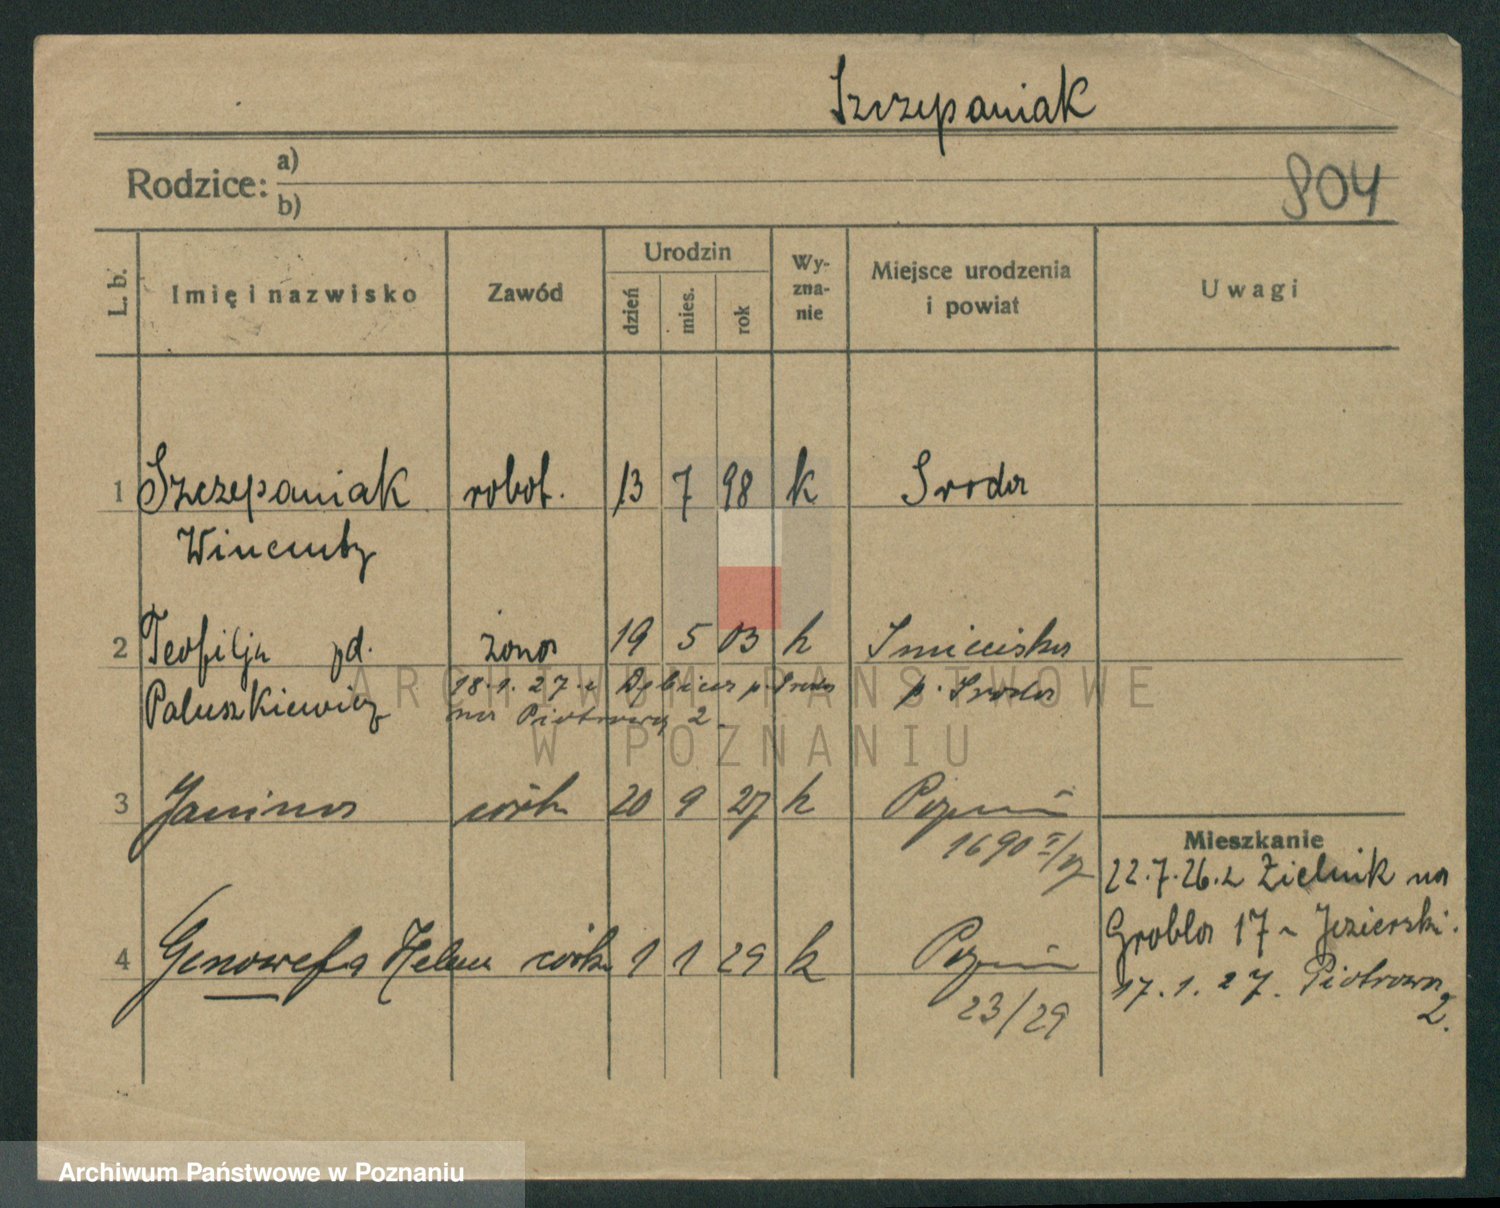 Szczepaniak
Rodzice: a)
b)
804
L. b.
Imię i nazwisko
Zawód
Urodzin
dzień
mies.
rok
Wy-
zna-
nie
Miejsce urodzenia
i powiat
Uwagi
1 Szczepaniak robot. 13 7 98 k Sroda
Wincenty
2 Teofilja zd. żona 19 5 03 k Smieciska
Paluszkiewicz 18.1.27. z Dębicz p. Sroda p. Sroda
na Piotrowo 2.
3 Janina córk 20 9 27 k Poznań
1690
Mieszkanie
22.7.26. z Zielnik na
Grobla 17 Jezierski.
4 Genowefa Helena córk 1 1 29 k Poznań
23/29
17.1.27. Piotrowo
2.
ARCHIWUM PAŃSTWOWE
W POZNANIU
Archiwum Państwowe w Poznaniu